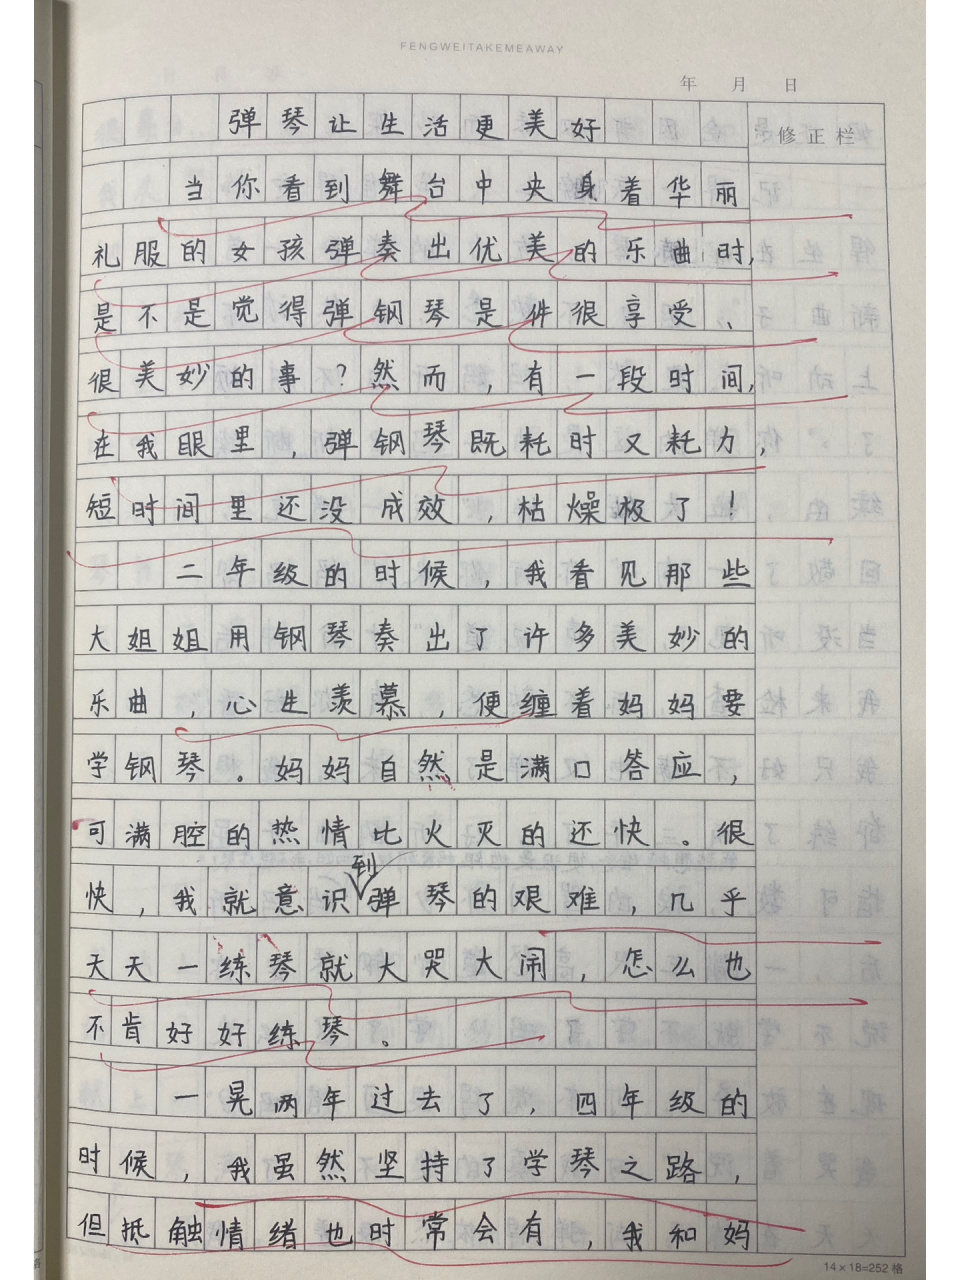 FENGWEITAKEMEAWAY
年 月 日
弹琴让生活更美好
修正栏
当你看到舞台中央身着华丽
礼服的女孩弹奏出优美的乐曲时,
是不是觉得弹钢琴是件很享受、
很美妙的事?然而,有一段时间,
在我眼里,弹钢琴既耗时又耗力,
短时间里还没成效,枯燥极了!
二年级的时候,我看见那些
大姐姐用钢琴奏出了许多美妙的
乐曲,心生羡慕,便缠着妈妈要
学钢琴。妈妈自然是满口答应,
可满腔的热情比火灭的还快。很
快,我就意识到弹琴的艰难,几乎
天天一练琴就大哭大闹,怎么也
不肯好好练琴。
一晃两年过去了,四年级的
时候,我虽然坚持了学琴之路,
但抵触情绪也时常会有,我和妈
14×18=252格